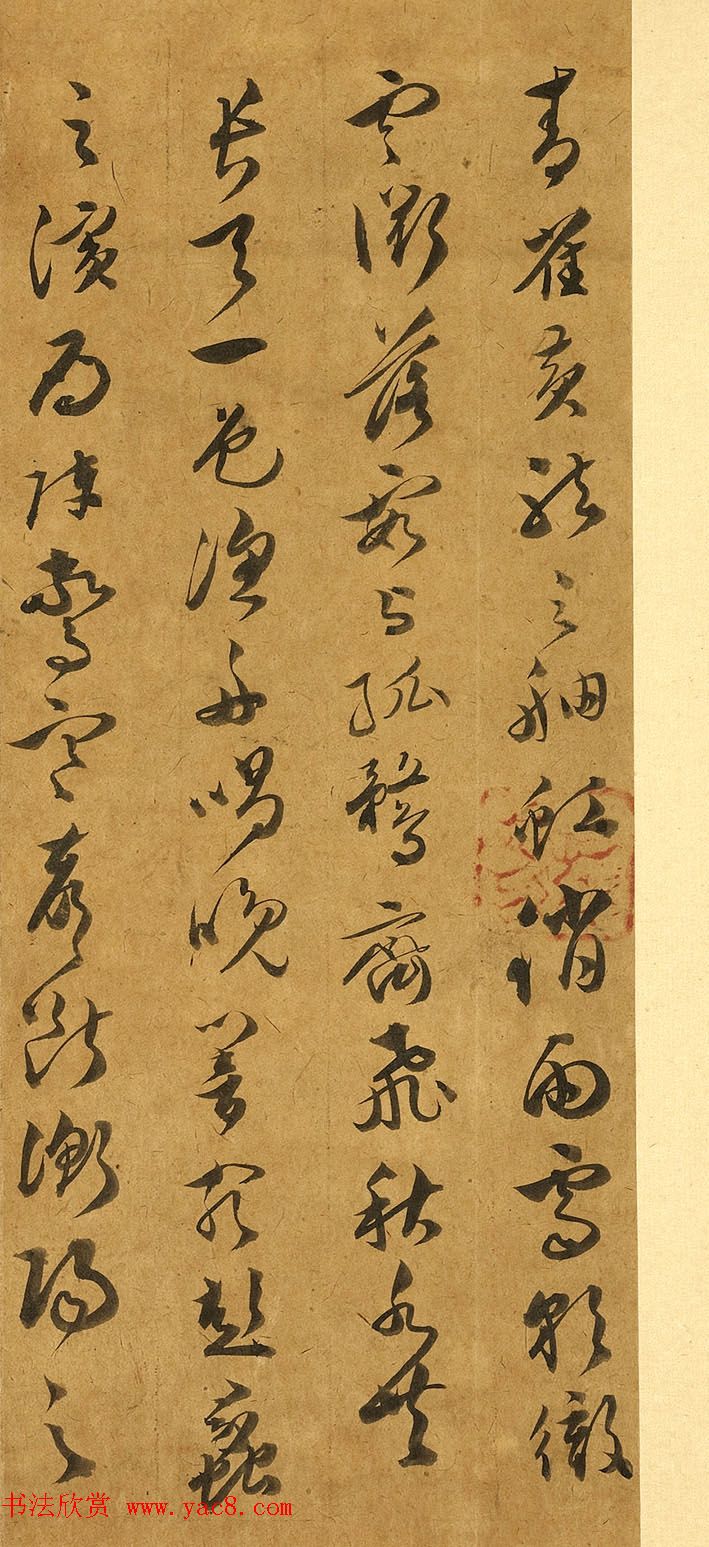 青雀黄龍之舳虹銷雨霽彩徹
雲衢落霞与孤鶩齊飛秋水共
長天一色漁舟唱晚響窮彭蠡
之濱雁陣驚寒聲斷衡陽之
书法欣赏 www.yac8.com